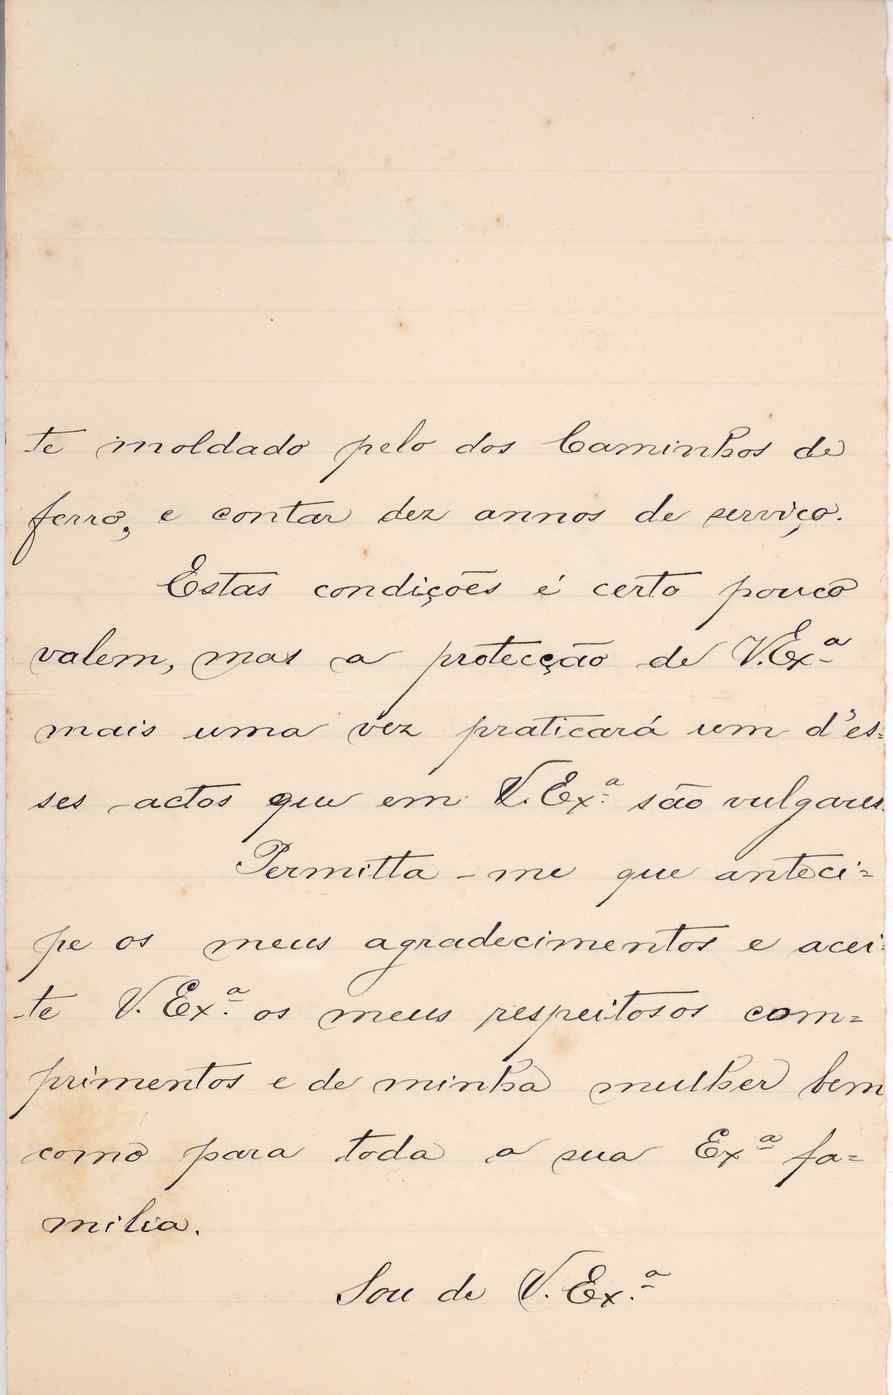 te moldado pelo dos Caminhos de
ferro, e contar dez annos de serviço.
Estas condições é certo pouco
valem, mas a protecção de V. Ex.ª
mais uma vez praticará um d'es=
ses actos que em V. Ex.ª são vulgares.
Permitta-me que anteci=
pe os meus agradecimentos e acei=
te V. Ex.ª os meus respeitosos com=
primentos e de minha mulher bem
como para toda a sua Exª fa=
milia.
Sou de V. Ex.ª